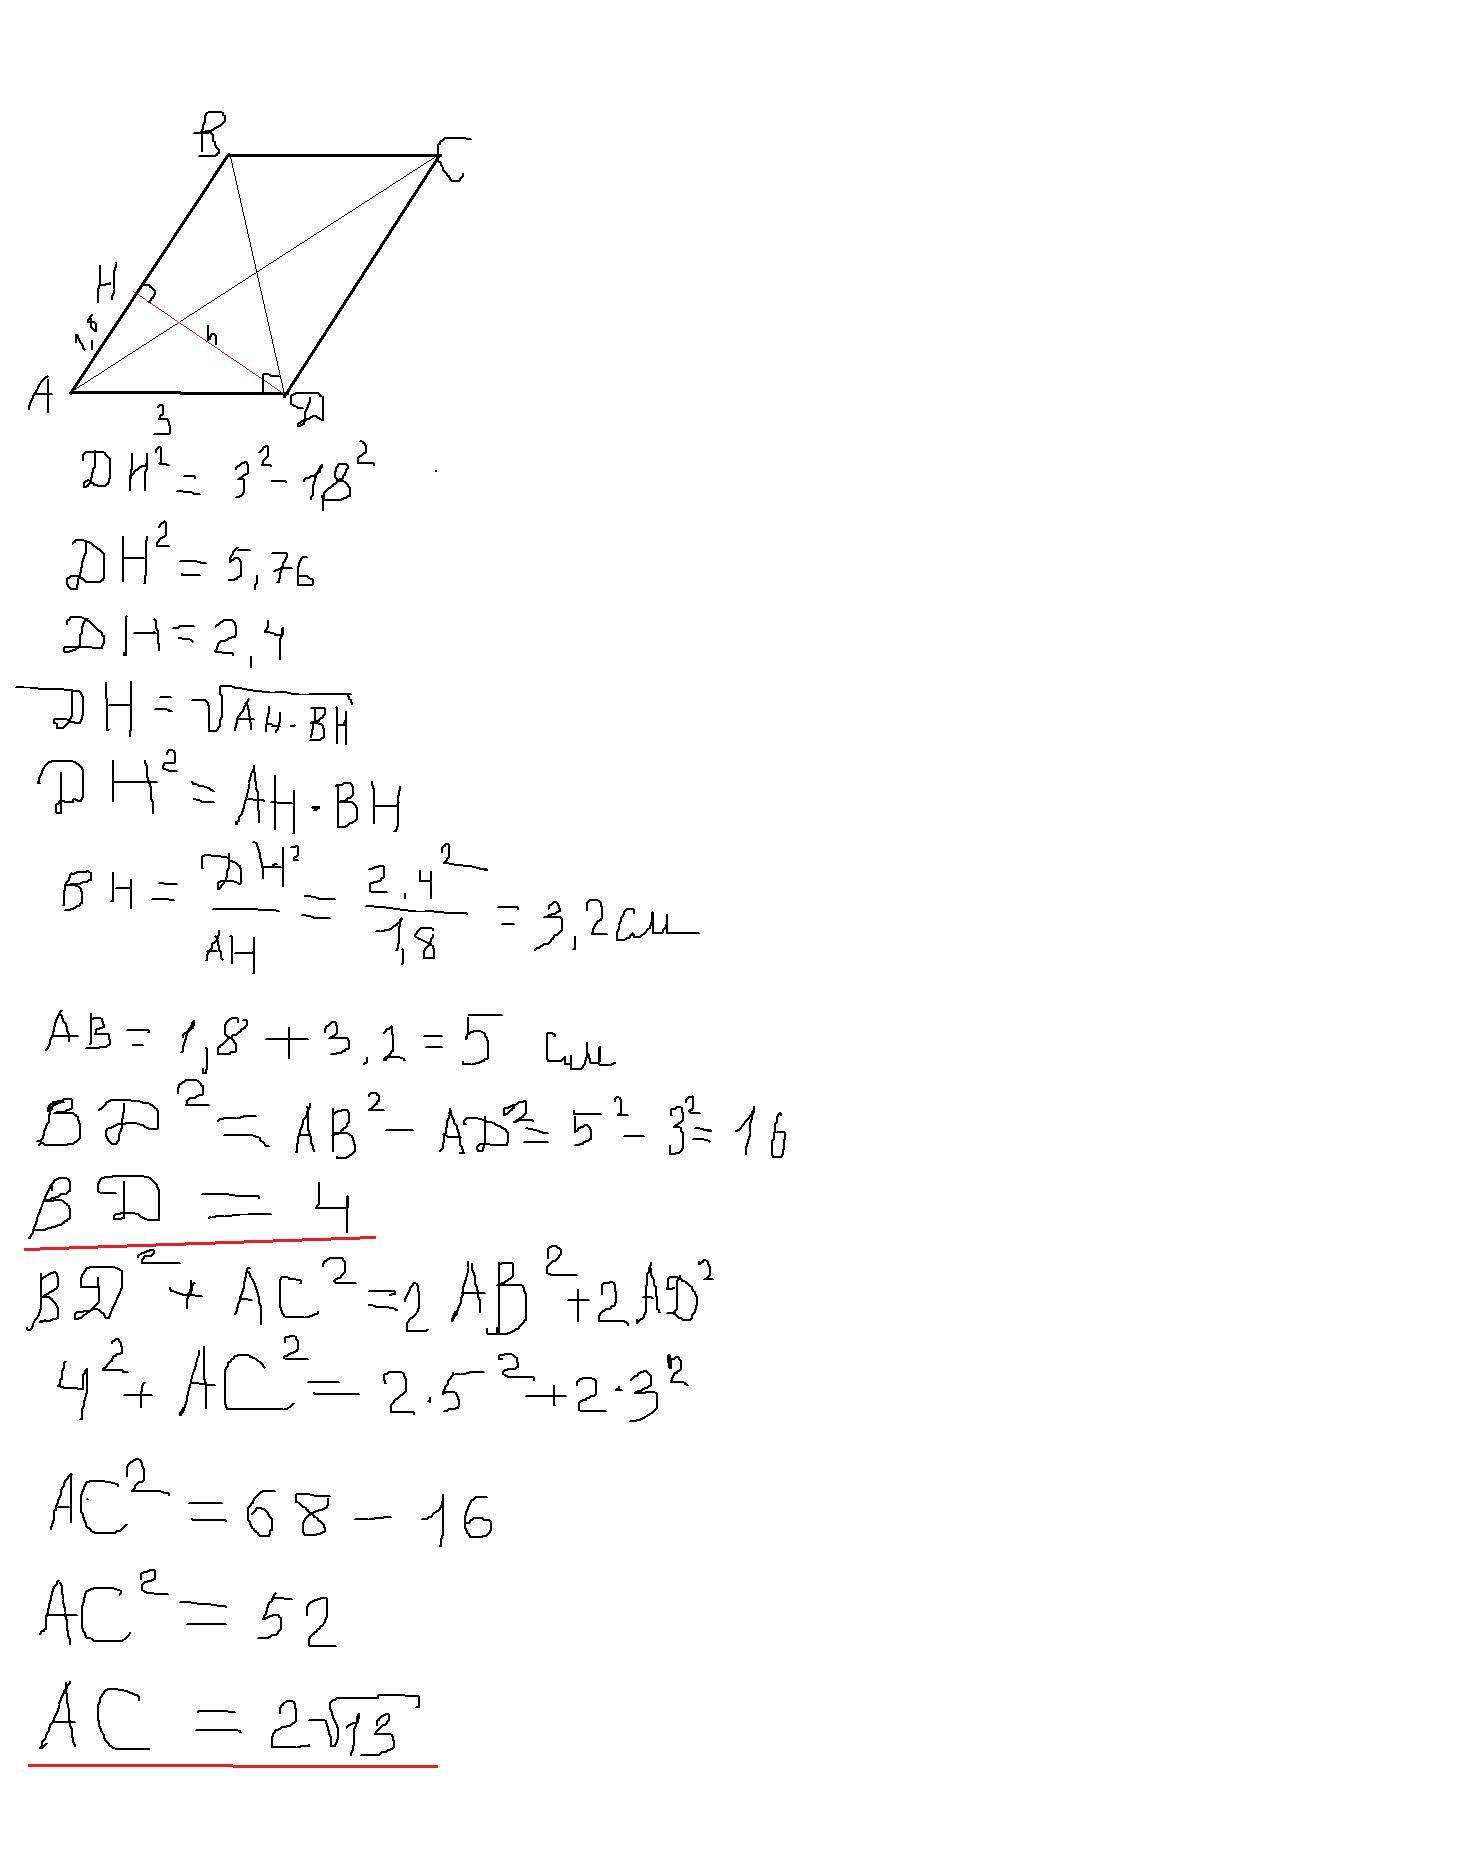 B
C
H
1,8
h
A
3
D
DH² = 3² - 1,8²
DH² = 5,76
DH = 2,4
DH = √AH·BH
DH² = AH·BH
BH = DH²/AH = 2.4²/1,8 = 3,2 см
AB = 1,8 + 3,2 = 5 см
BD² = AB² - AD² = 5² - 3² = 16
BD = 4
BD² + AC² = 2AB² + 2AD²
4² + AC² = 2·5² + 2·3²
AC² = 68 - 16
AC² = 52
AC = 2√13